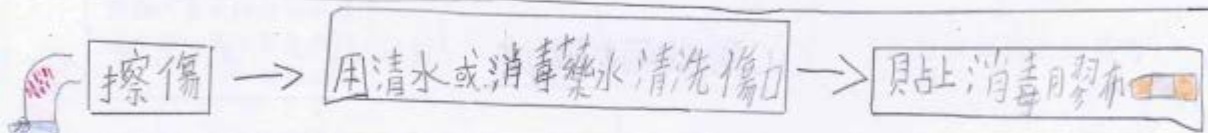 擦傷 → 用清水或消毒藥水清洗傷口 → 貼上消毒膠布